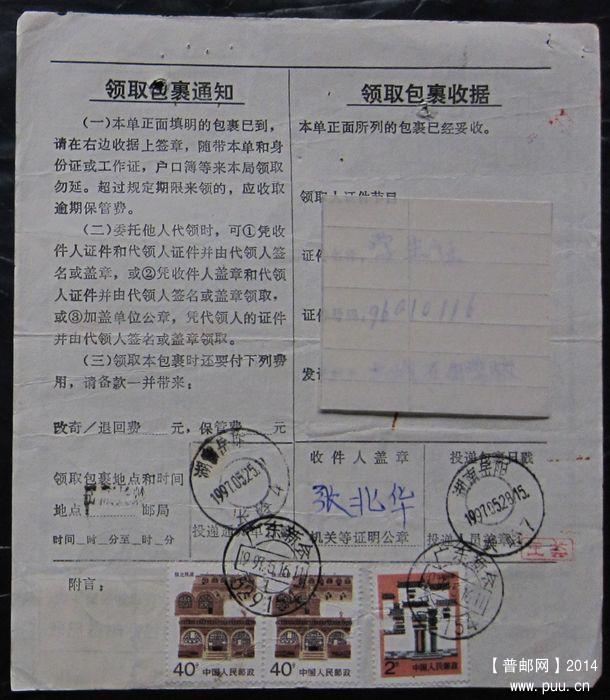 领取包裹通知
(一)本单正面填明的包裹已到，
请在右边收据上签章，随带本单和身
份证或工作证，户口簿等来本局领取
勿延。超过规定期限来领的，应收取
逾期保管费。
(二)委托他人代领时，可①凭收
件人证件和代领人证件并由代领人签
名或盖章，或②凭收件人盖章和代领
人证件并由代领人签名或盖章领取，
或③加盖单位公章，凭代领人的证件
并由代领人签名或盖章领取。
(三)领取本包裹时还要付下列费
用，请备款一并带来：
改寄／退回费 元，保管费 元
领取包裹地点和时间
地点 邮局
时间 时 分至 时 分
附言：
领取包裹收据
本单正面所列的包裹已经妥收。
领取人证件
证件
学生证
证
96010116
发证
收件人盖章
张北华
机关等证明公章
投递包裹日戳
投递人员盖章
投递
湖南岳阳
1997.05.25
湖南岳阳
1997.05.28.15
广东新会
广东新会
154
40分
中国人民邮政
40分
中国人民邮政
2分
中国人民邮政
【普邮网】2014
www.puu.cn